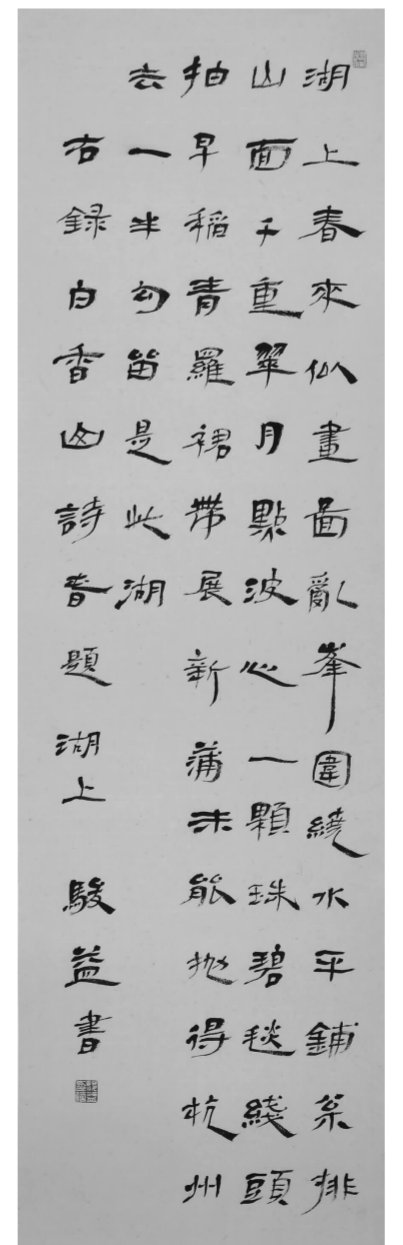 湖上春來似畫圖亂峯圍繞水平鋪枀排
山面千重翠月點波心一顆珠碧毯綫頭
抽早稻青羅裙帶展新蒲未能拋得杭州
去一半勾留是此湖
右錄白香山詩春題湖上 駿益書